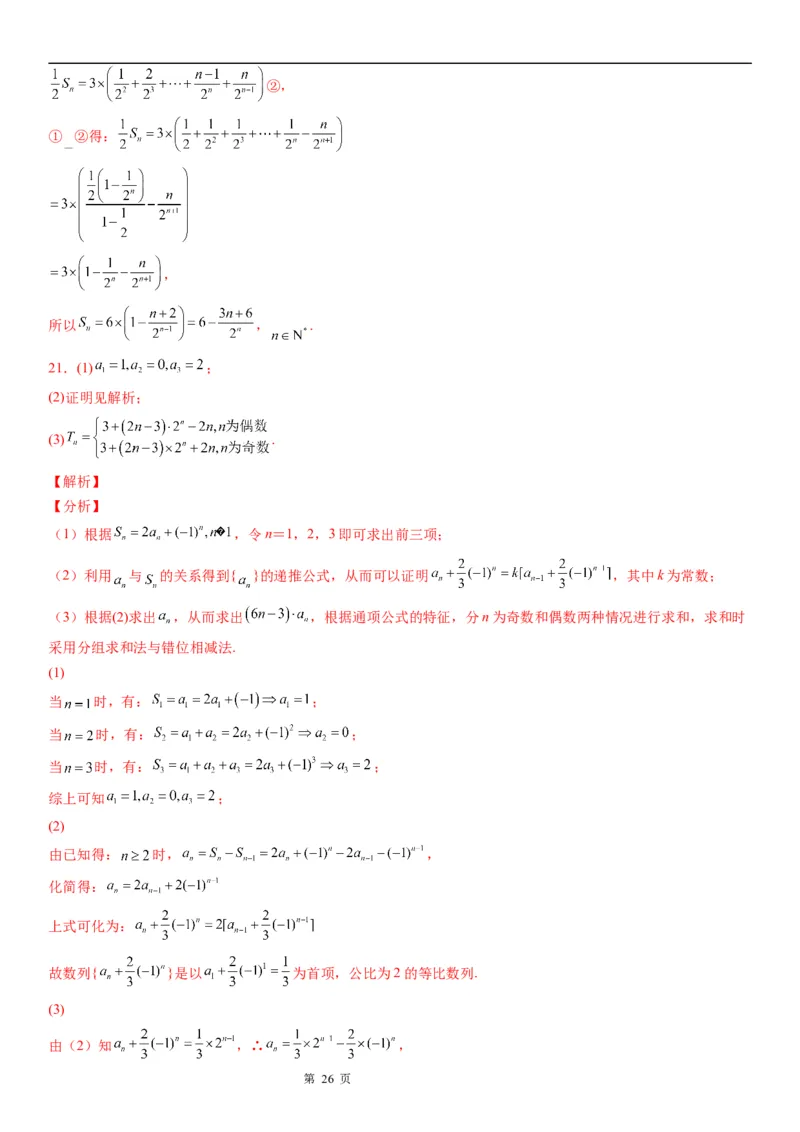 1/2 Sₙ = 3×(1/2² + 2/2³ + ⋯ + (n−1)/2ⁿ + n/2ⁿ⁻¹)②,
① _ ②得: 1/2 Sₙ = 3×(1/2 + 1/2² + 1/2³ + ⋯ + 1/2ⁿ − n/2ⁿ⁺¹)
= 3×((1/2(1−1/2ⁿ))/(1−1/2) − n/2ⁿ⁺¹)
= 3×(1 − 1/2ⁿ − n/2ⁿ⁺¹),
所以 Sₙ = 6×(1 − (n+2)/2ⁿ⁻¹) = 6 − (3n+6)/2ⁿ, n∈N*.
21. (1) a₁ = 1, a₂ = 0, a₃ = 2;
(2)证明见解析;
(3) Tₙ = { 3+(2n−3)·2ⁿ −2n, n为偶数
3+(2n−3)×2ⁿ +2n, n为奇数 .
【解析】
【分析】
(1)根据 Sₙ = 2aₙ +(−1)ⁿ, n�1,令 n=1,2,3即可求出前三项;
(2)利用 aₙ 与 Sₙ 的关系得到{aₙ}的递推公式,从而可以证明 aₙ + 2/3(−1)ⁿ = k[aₙ₋₁ + 2/3(−1)ⁿ ¹],其中k为常数;
(3)根据(2)求出 aₙ,从而求出 (6n−3)·aₙ,根据通项公式的特征,分n为奇数和偶数两种情况进行求和,求和时
采用分组求和法与错位相减法.
(1)
当 n=1 时,有: S₁ = a₁ = 2a₁ +(−1) ⇒ a₁ = 1;
当 n=2 时,有: S₂ = a₁ + a₂ = 2a₂ +(−1)² ⇒ a₂ = 0;
当 n=3 时,有: S₃ = a₁ + a₂ + a₃ = 2a₃ +(−1)³ ⇒ a₃ = 2;
综上可知 a₁ = 1, a₂ = 0, a₃ = 2;
(2)
由已知得: n≥2 时, aₙ = Sₙ − Sₙ₋₁ = 2aₙ +(−1)ⁿ − 2aₙ₋₁ −(−1)ⁿ⁻¹,
化简得: aₙ = 2aₙ₋₁ + 2(−1)ⁿ⁻¹
上式可化为: aₙ + 2/3(−1)ⁿ = 2[aₙ₋₁ + 2/3(−1)ⁿ⁻¹]
故数列{aₙ + 2/3(−1)ⁿ}是以 a₁ + 2/3(−1)¹ = 1/3 为首项,公比为2的等比数列.
(3)
由(2)知 aₙ + 2/3(−1)ⁿ = 1/3×2ⁿ⁻¹, ∴ aₙ = 1/3×2ⁿ ¹ − 2/3×(−1)ⁿ,
第 26 页